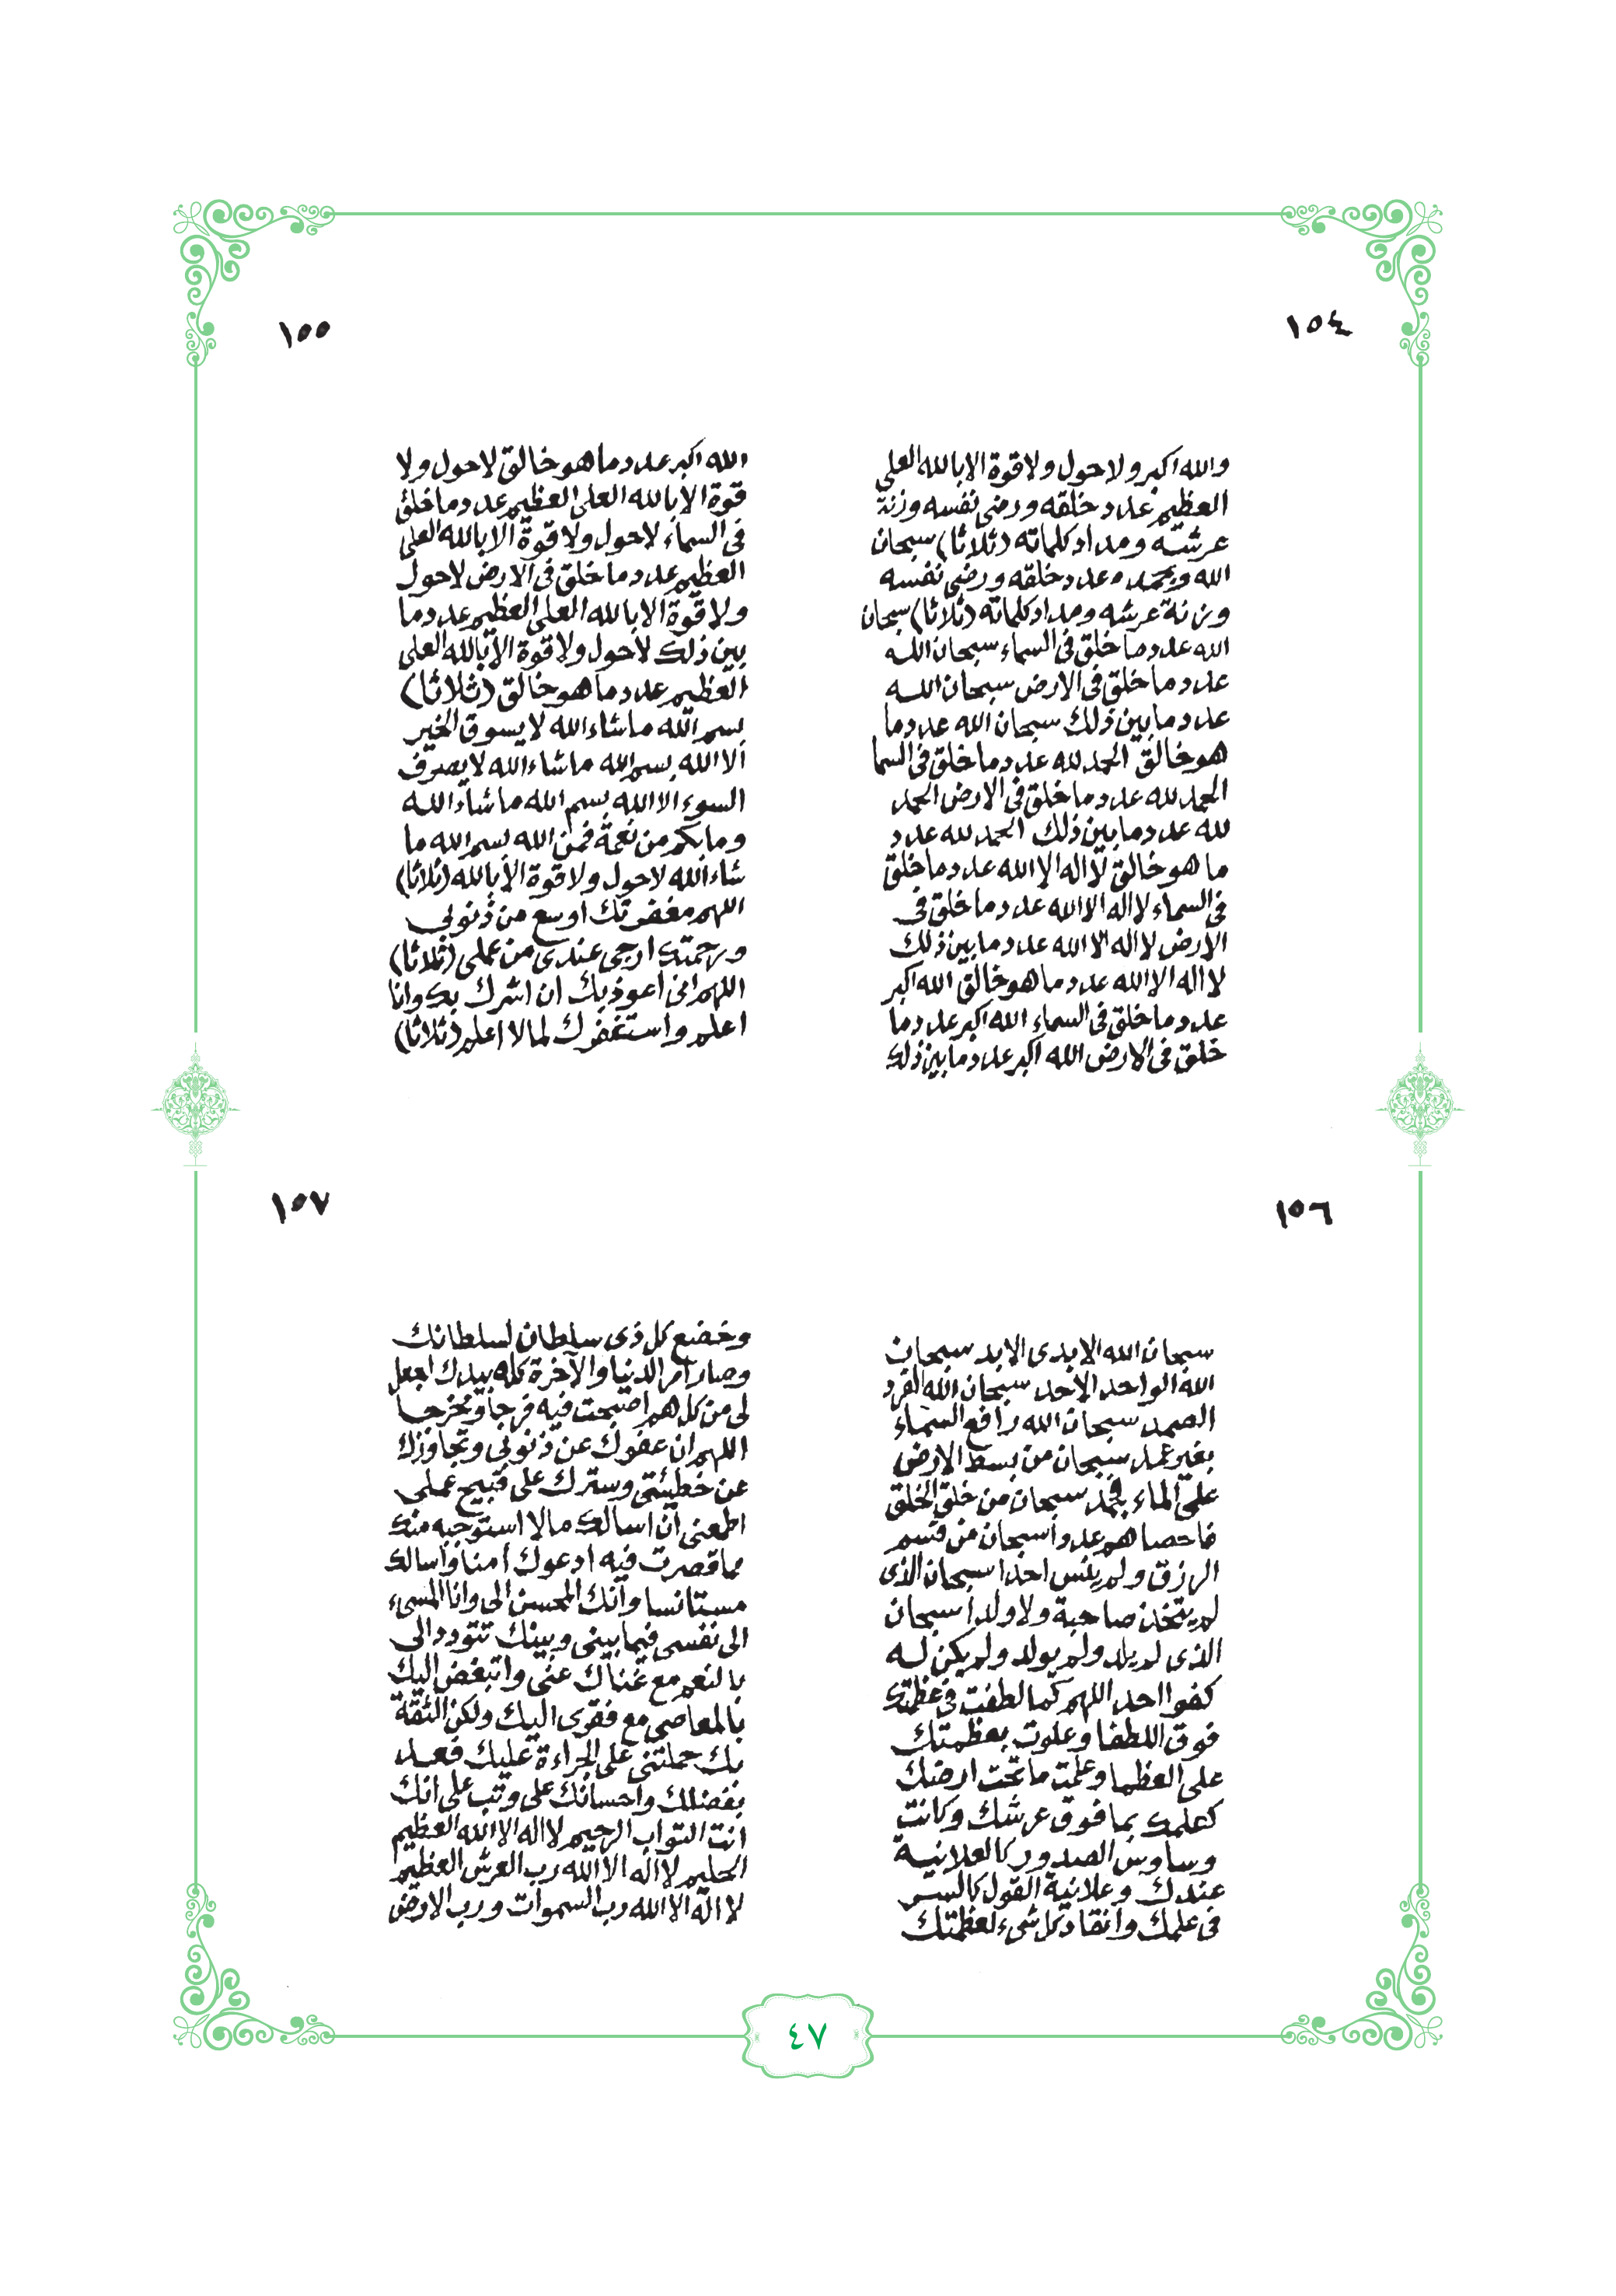 ١٥٤
والله اكبر ولا حول ولا قوة الا بالله العلى
العظيم عدد خلقه ورضى نفسه وزنة
عرشه ومداد كلماته (ثلاثا) سبحان
الله وبحمده عدد خلقه ورضى نفسه
وزنة عرشه ومداد كلماته (ثلاثا) سبحان
الله عدد ما خلق فى السماء سبحان الله
عدد ما خلق فى الارض سبحان الله
عدد ما بين ذلك سبحان الله عدد ما
هو خالق الحمد لله عدد ما خلق فى السما
الحمد لله عدد ما خلق فى الارض الحمد
لله عدد ما بين ذلك الحمد لله عدد
ما هو خالق لا اله الا الله عدد ما خلق
فى السماء لا اله الا الله عدد ما خلق فى
الارض لا اله الا الله عدد ما بين ذلك
لا اله الا الله عدد ما هو خالق الله اكبر
عدد ما خلق فى السماء الله اكبر عدد ما
خلق فى الارض الله اكبر عدد ما بين ذلك
١٥٥
الله اكبر عدد ما هو خالق لا حول ولا
قوة الا بالله العلى العظيم عدد ما خلق
فى السماء لا حول ولا قوة الا بالله العلى
العظيم عدد ما خلق فى الارض لا حول
ولا قوة الا بالله العلى العظيم عدد ما
بين ذلك لا حول ولا قوة الا بالله العلى
العظيم عدد ما هو خالق (ثلاثا)
بسم الله ما شاء الله لا يسوق الخير
الا الله بسم الله ما شاء الله لا يصرف
السوء الا الله بسم الله ما شاء الله
وما بكم من نعمة فمن الله بسم الله ما
شاء الله لا حول ولا قوة الا بالله (ثلاثا)
اللهم مغفرتك اوسع من ذنوبى
ورحمتك ارجى عندى من عملى (ثلاثا)
اللهم انى اعوذ بك ان اشرك بك وانا
اعلم واستغفرك لما لا اعلم (ثلاثا)
١٥٦
سبحان الله الابدى الابد سبحان
الله الواحد الاحد سبحان الله الفرد
الصمد سبحان الله رافع السماء
بغير عمد سبحان من بسط الارض
على الماء فجمد سبحان من خلق الخلق
فاحصاهم عددا سبحان من قسم
الرزق ولم ينس احدا سبحان الذى
لم يتخذ صاحبة ولا ولدا سبحان
الذى لم يلد ولم يولد ولم يكن له
كفوا احد اللهم كما لطفت فى عظمتك
فوق اللطفا وعلوت بعظمتك
على العظما وعلمت ما تحت ارضك
كعلمك بما فوق عرشك وكانت
وساوس الصدور كالعلانية
عندك وعلانية القول كالسر
فى علمك وانقاد كل شىء لعظمتك
١٥٧
وخضع كل ذى سلطان لسلطانك
وصار امر الدنيا والآخرة كله بيدك اجعل
لى من كل هم اصبحت فيه فرجا ومخرجا
اللهم ان عفوك عن ذنوبى وتجاوزك
عن خطيئتى وسترك على قبيح عملى
اطعنى ان اسالك ما لا استوجبه منك
مما قصرت فيه ادعوك أمنا وأسالك
مستانسا وانك المحسن الى وانا المسىء
الى نفسى فيما بينى وبينك تتودد الى
بالنعم مع غناك عنى واتبغض اليك
بالمعاصى مع فقرى اليك ولكن الثقة
بك حملتنى على الجراءة عليك فعد
بفضلك واحسانك على وتب على انك
انت التواب الرحيم لا اله الا الله العظيم
الحليم لا اله الا الله رب العرش العظيم
لا اله الا الله رب السموات ورب الارض
٤٧